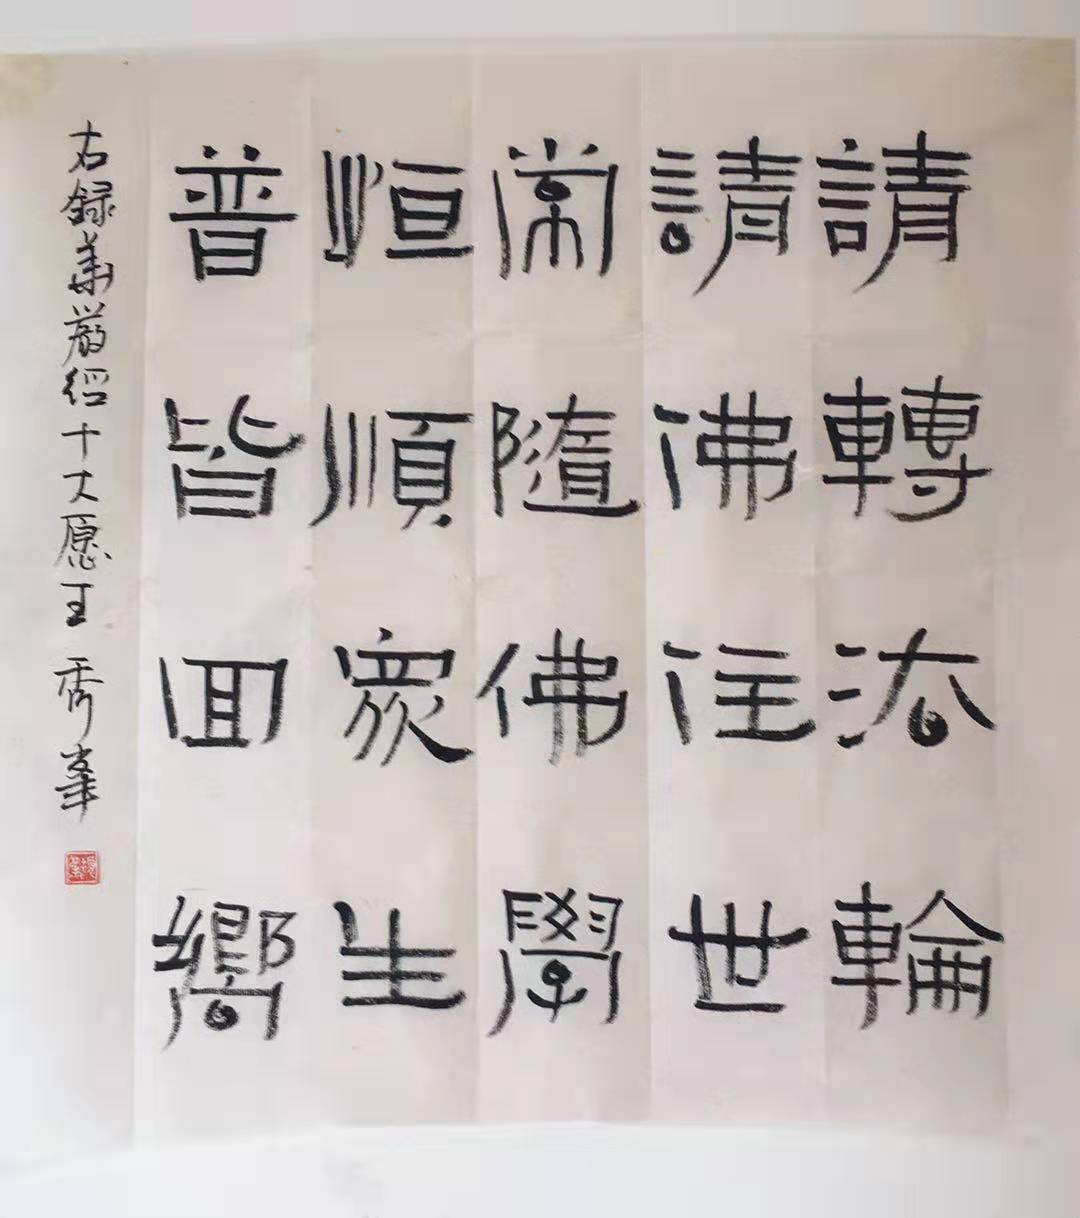 請轉法輪
請佛住世
常隨佛學
恒順衆生
普皆回嚮
右録華嚴經十大愿王 秀峯